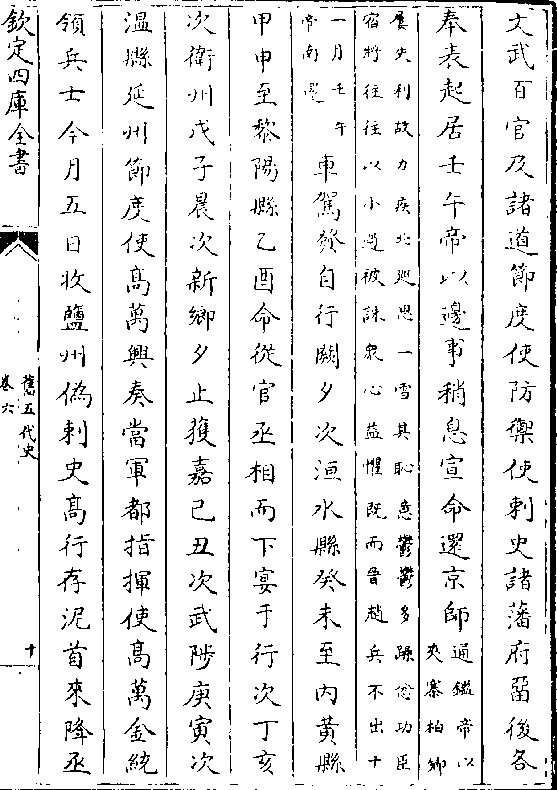 文武百官及諸道節度使防禦使刺史諸藩府留後各
奉表起居壬午帝以邊事稍息宣命還京師通鑑帝以
夾寨柏鄉
屢失利故力疾北巡思一雪其恥意鬱鬱多躁忿功臣
宿將往往以小過被誅衆心益懼既而晉趙兵不出十
一月壬午
帝南還
車駕發自行闕夕次洹水縣癸未至内黃縣
甲申至黎陽縣乙酉命從官丞相而下宴于行次丁亥
次衛州戊子晨次新鄉夕止獲嘉己丑次武陟庚寅次
溫縣延州節度使高萬興奏當軍都指揮使高萬金統
領兵士今月五日收鹽州偽刺史高行存泥首來降丞
欽定四庫全書
舊五代史
卷六
十